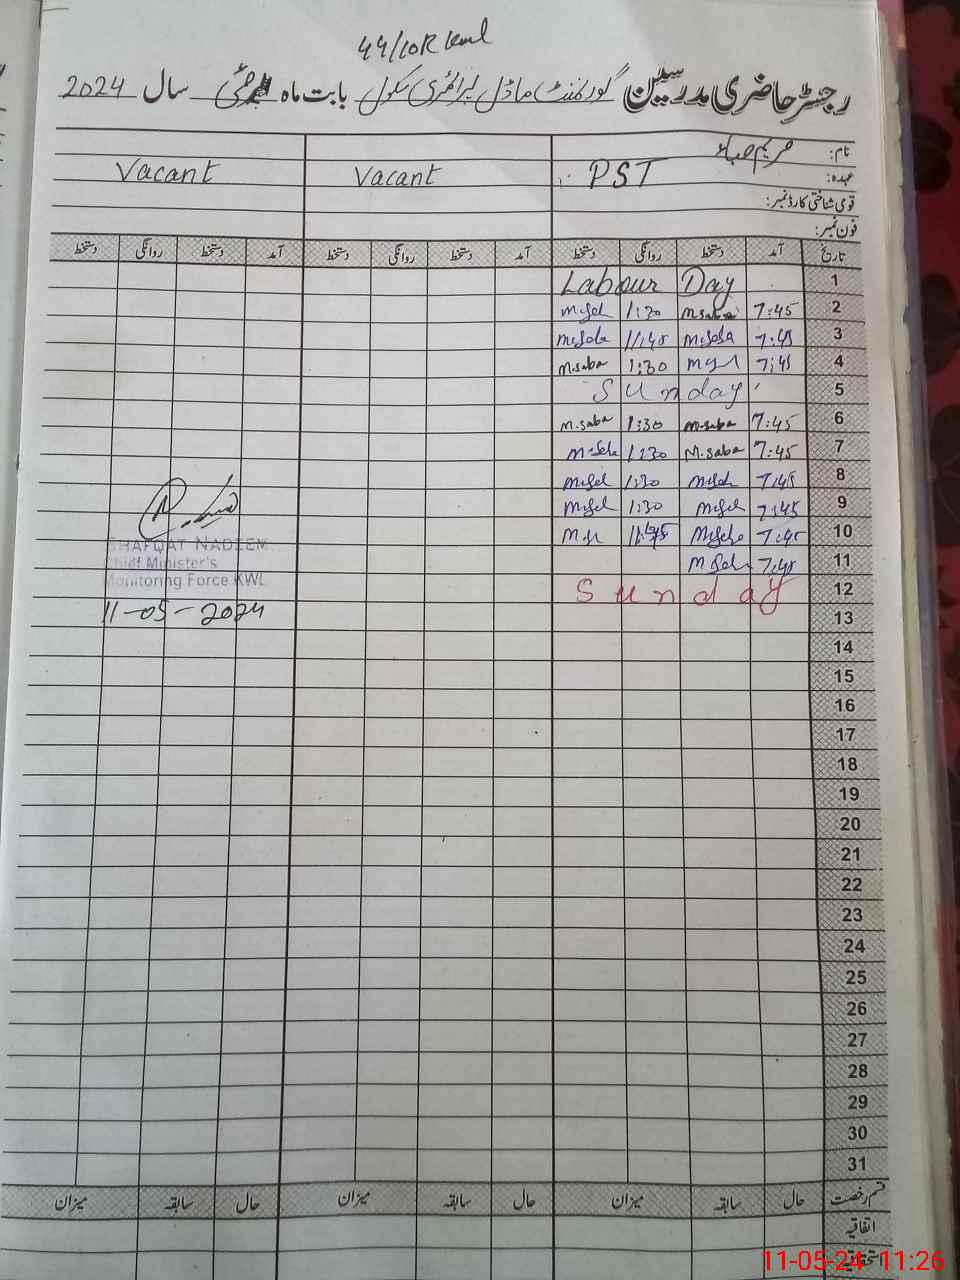 44/10R kwl
رجسٹر حاضری مدرسین گورنمنٹ ماڈل پرائمری سکول بابت ماہ مئی سال 2024
نام: مریم صباء
عہدہ: PST Vacant Vacant
قومی شناختی کارڈ نمبر:
فون نمبر:
تاریخ آمد دستخط روانگی دستخط آمد دستخط روانگی دستخط آمد دستخط روانگی دستخط
1 Labour Day
2 7:45 M.saba 1:30
3 7:45 M.Saba 11:45 M.Saba
4 7:45 1:30 M.saba
5 Sunday
6 7:45 M.saba 1:30 M.saba
7 7:45 M.saba 1:30
8 7:45 1:30
9 7:45 1:30
10 7:45
11 7:45
12 Sunday
13
14
15
16
17
18
19
20
21
22
23
24
25
26
27
28
29
30
31
SHAFQAT NADEEM
Chief Minister's
Monitoring Force KWL
11-05-2024
قسم رخصت حال سابقہ میزان حال سابقہ میزان حال سابقہ میزان
اتفاقیہ
استحقاقیہ
11-05-24 11:26